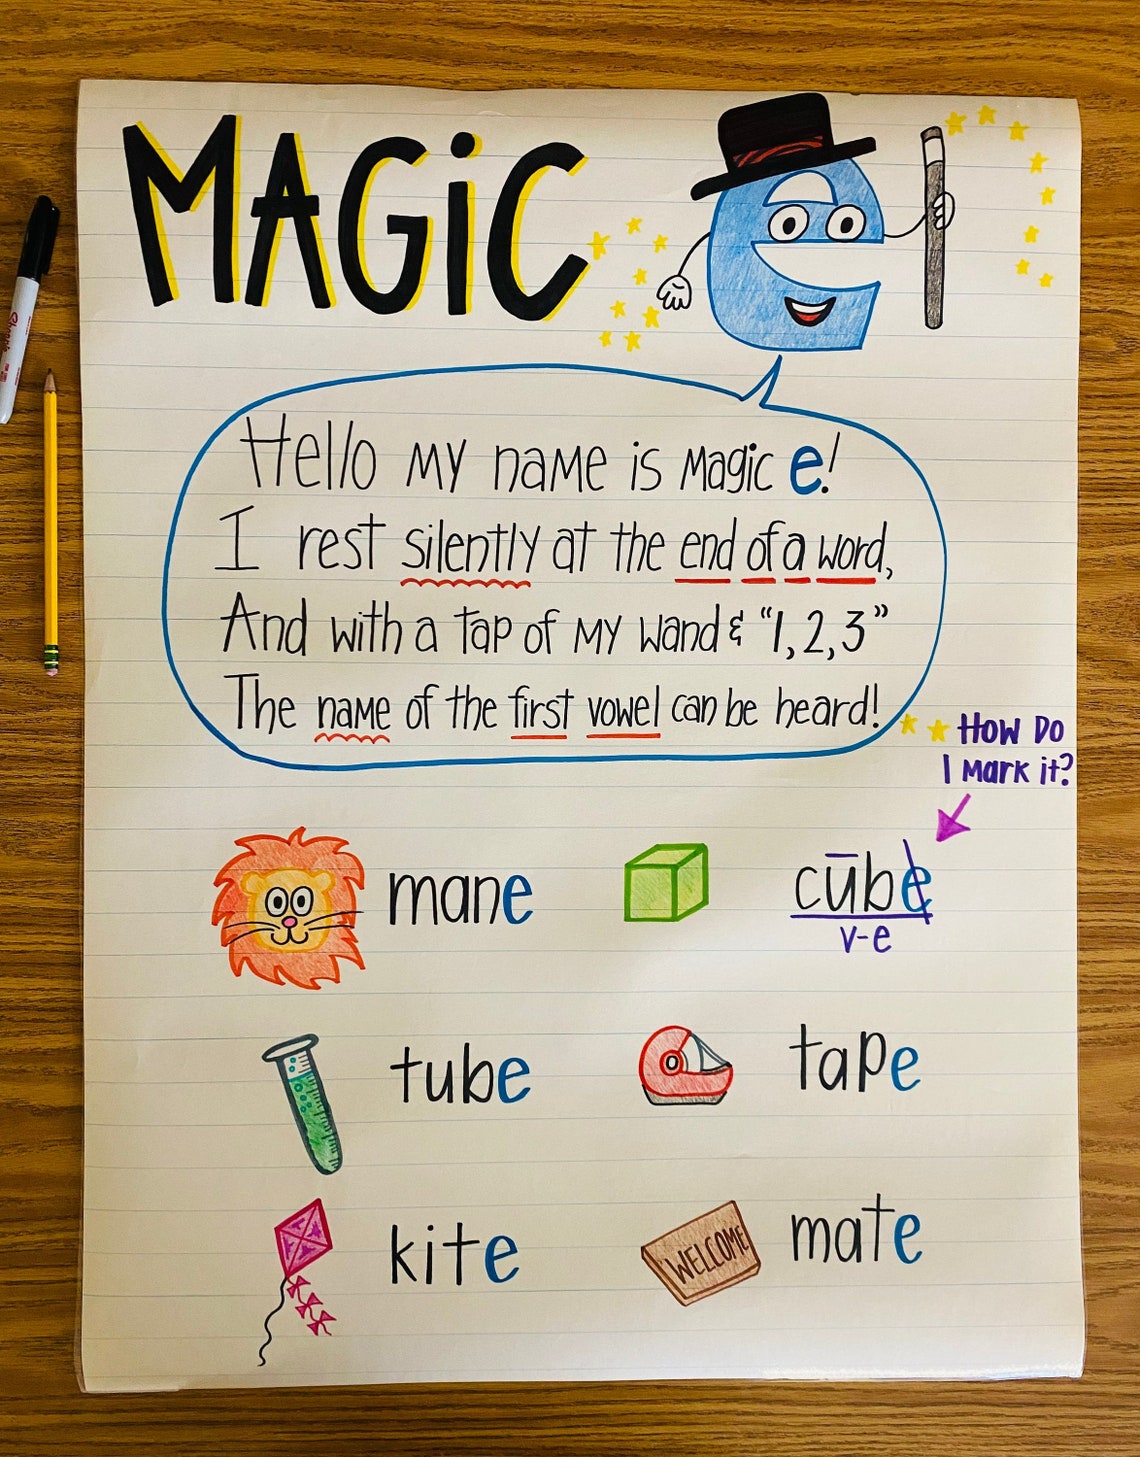 MAGiC e
Hello my name is Magic e!
I rest silently at the end of a word,
And with a tap of my wand & "1, 2, 3"
The name of the first vowel can be heard!
How Do
I Mark it?
mane
cūbe
v-e
tube
tape
kite
WELCOME
mate